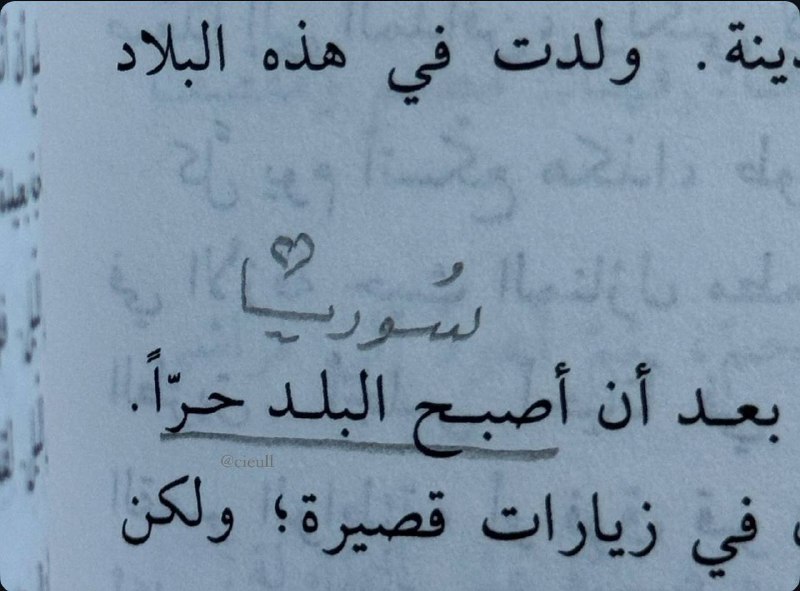 دينة. ولدت في هذه البلاد
سُوريا
بعد أن أصبح البلد حرّاً.
@cieull
في زيارات قصيرة؛ ولكن